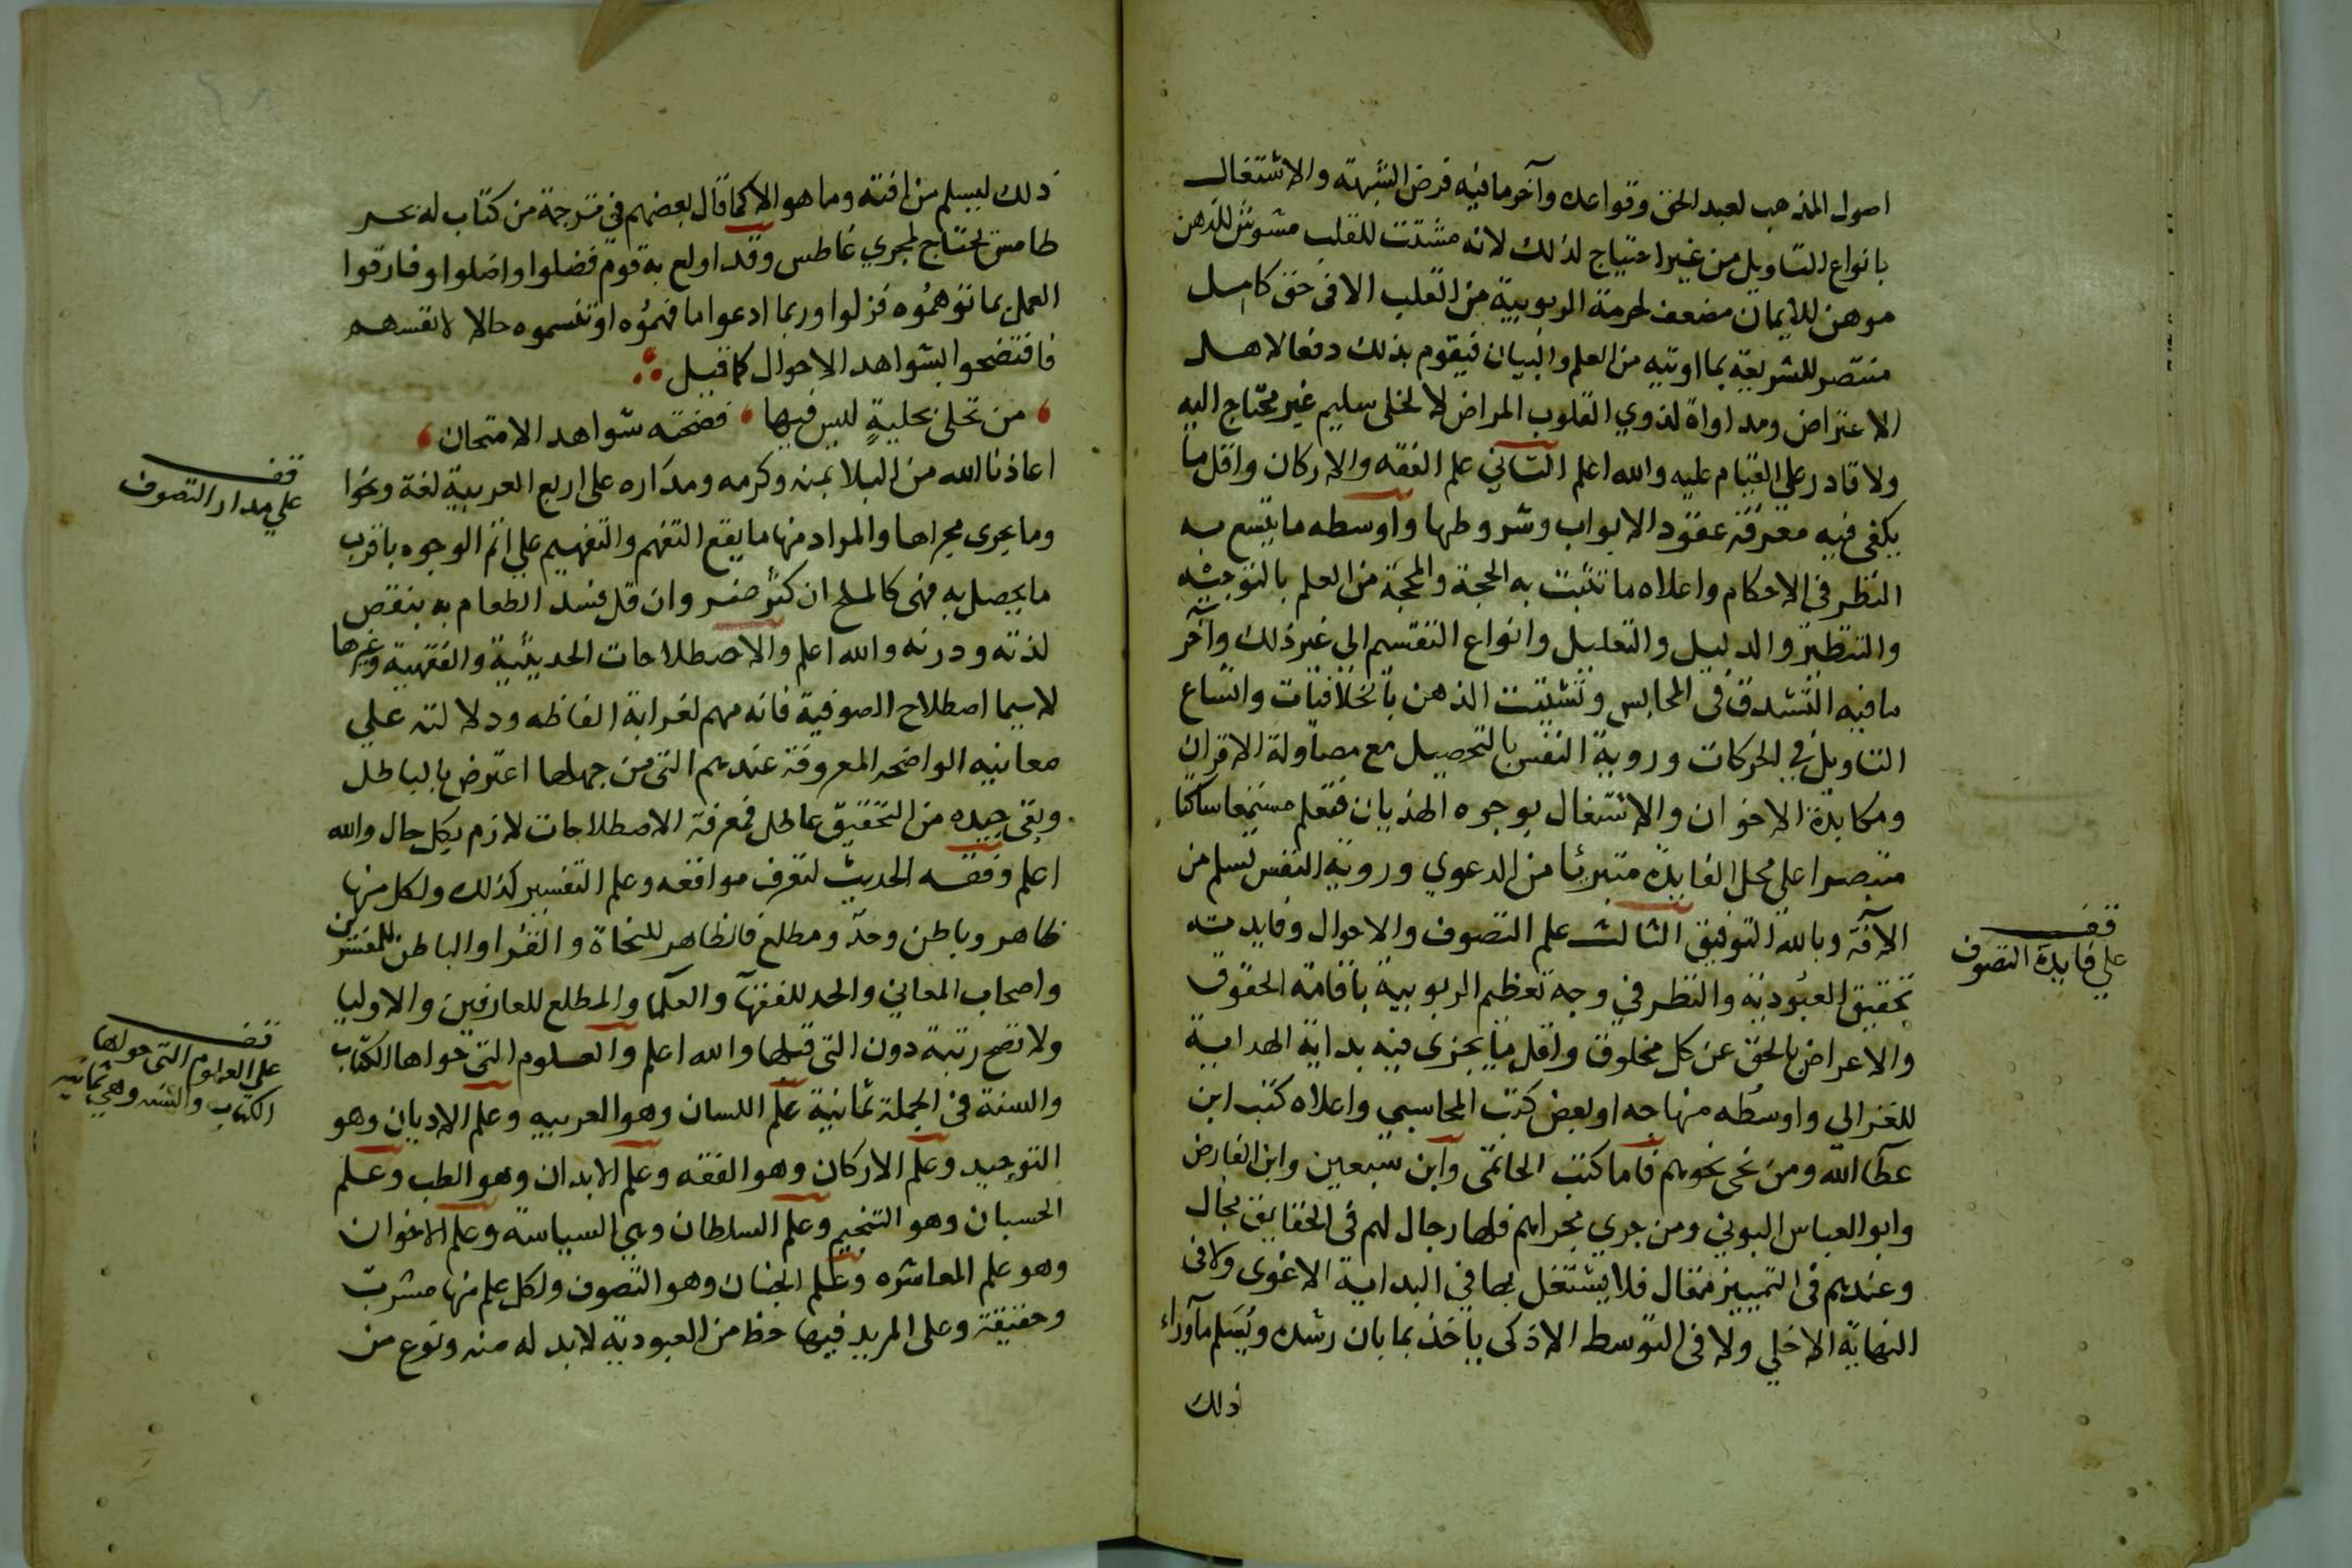 اصول المذهب لعبد الحق وقواعده وآخر ما فيه فرض الشبهة والاشتغال
بانواع التاويل من غير احتياج لذلك لانه مشتت للقلب مشوش للذهن
موهن للايمان مضعف لحرمة الربوبية من القلب الا في حق كامل
منتصر للشريعة بما اوتيه من العلم والبيان فيقوم بذلك دفعا لاهل
الاعتراض ومداواة لذوي القلوب المراض لا لخلى سليم غير محتاج اليه
ولا قادر علي القيام عليه والله اعلم الثاني علم الفقه والاركان واقل ما
يكفى فيه معرفة عقود الابواب وشروطها واوسطه ما يتسع به
النظر في الاحكام واعلاه ما تثبت به الحجة والمحجة من العلم بالتوجيه
والتنظير والدليل والتعليل وانواع التقسيم الي غير ذلك وآخر
ما فيه التشدق في المجالس وتشتيت الذهن بالخلافيات واتساع
التاويل في الحركات وروية النفس بالتحصيل مع مصاولة الاقران
ومكابدة الاخوان والاشتغال بوجوه الهذيان فتعلم مستمعا ساكنا
متبصرا علي محل الفايدة متبرئا من الدعوي وروية النفس تسلم من
الآفة وبالله التوفيق الثالث علم التصوف والاحوال وفايدته
تحقيق العبودية والنظر في وجه تعظيم الربوبية باقامة الحقوق
والاعراض بالحق عن كل مخلوق واقل ما يجزى فيه بداية الهداية
للغزالي واوسطه منهاجه او بعض كتب المحاسبي واعلاه كتب ابن
عطا الله ومن نحى نحوهم فاما كتب الحاتمى وابن سبعين وابن الفارض
وابو العباس البوني ومن جري مجراهم فلها رجال لهم في الحقايق مجال
وعندهم في التمييز مقال فلا يشتغل بها في البداية الا غوى ولا في
النهاية الا خلي ولا في التوسط الا ذكى ياخذ بما بان رشده ويسلم ما وراء
ذلك
قف
علي فايدة التصوف
ذلك ليسلم من افته وما هو الا كما قال بعضهم في ترجمة من كتاب له بحر
طامس يحتاج لمجري غاطس وقد اولع به قوم فضلوا واضلوا وفارقوا
العمل بما توهموه فزلوا وربما ادعوا ما فهموه او تنسموه حالا لانفسهم
فافتضحوا بشواهد الاحوال كما قيل
من تحلى بحلية ليس فيها فضحته شواهد الامتحان
اعاذنا الله من البلا بمنه وكرمه ومداره على اربع العربية لغة ونحوا
وما يجرى مجراها والمراد منها ما يقع التفهم والتفهيم علي اتم الوجوه باقرب
ما يحصل به فهى كالملح ان كثر ضر وان قل فسد الطعام به بنقص
لذته ودرنه والله اعلم والاصطلاحات الحديثية والفقهية وغيرها
لا سيما اصطلاح الصوفية فانه مهم لغرابة الفاظه ودلالته علي
معانيه الواضحه المعروفة عندهم التى من جهلها اعترض بالباطل
وبقى جيده من التحقيق عاطل فمعرفة الاصطلاحات لازم بكل حال والله
اعلم وفقه الحديث لتعرف مواقعه وعلم التفسير كذلك ولكل منها
ظاهر وباطن وحد ومطلع فالظاهر للنحاة والقرا والباطن للمفسرين
واصحاب المعاني والحد للفقها والعلما والمطلع للعارفين والاوليا
ولا تصح رتبة دون التى قبلها والله اعلم والعلوم التى حواها الكتاب
والسنة في الجملة ثمانية علم اللسان وهو العربيه وعلم الاديان وهو
التوحيد وعلم الاركان وهو الفقه وعلم الابدان وهو الطب وعلم
الحسبان وهو التنجيم وعلم السلطان وهي السياسة وعلم الاخوان
وهو علم المعاشره وعلم الجنان وهو التصوف ولكل علم منها مشرب
وحقيقة وعلى المريد فيها حظ من العبودية لا بد له منه ونوع من
قف
علي مدار التصوف
قف
علي العلوم التى حواها
الكتاب والسنه وهي ثمانيه